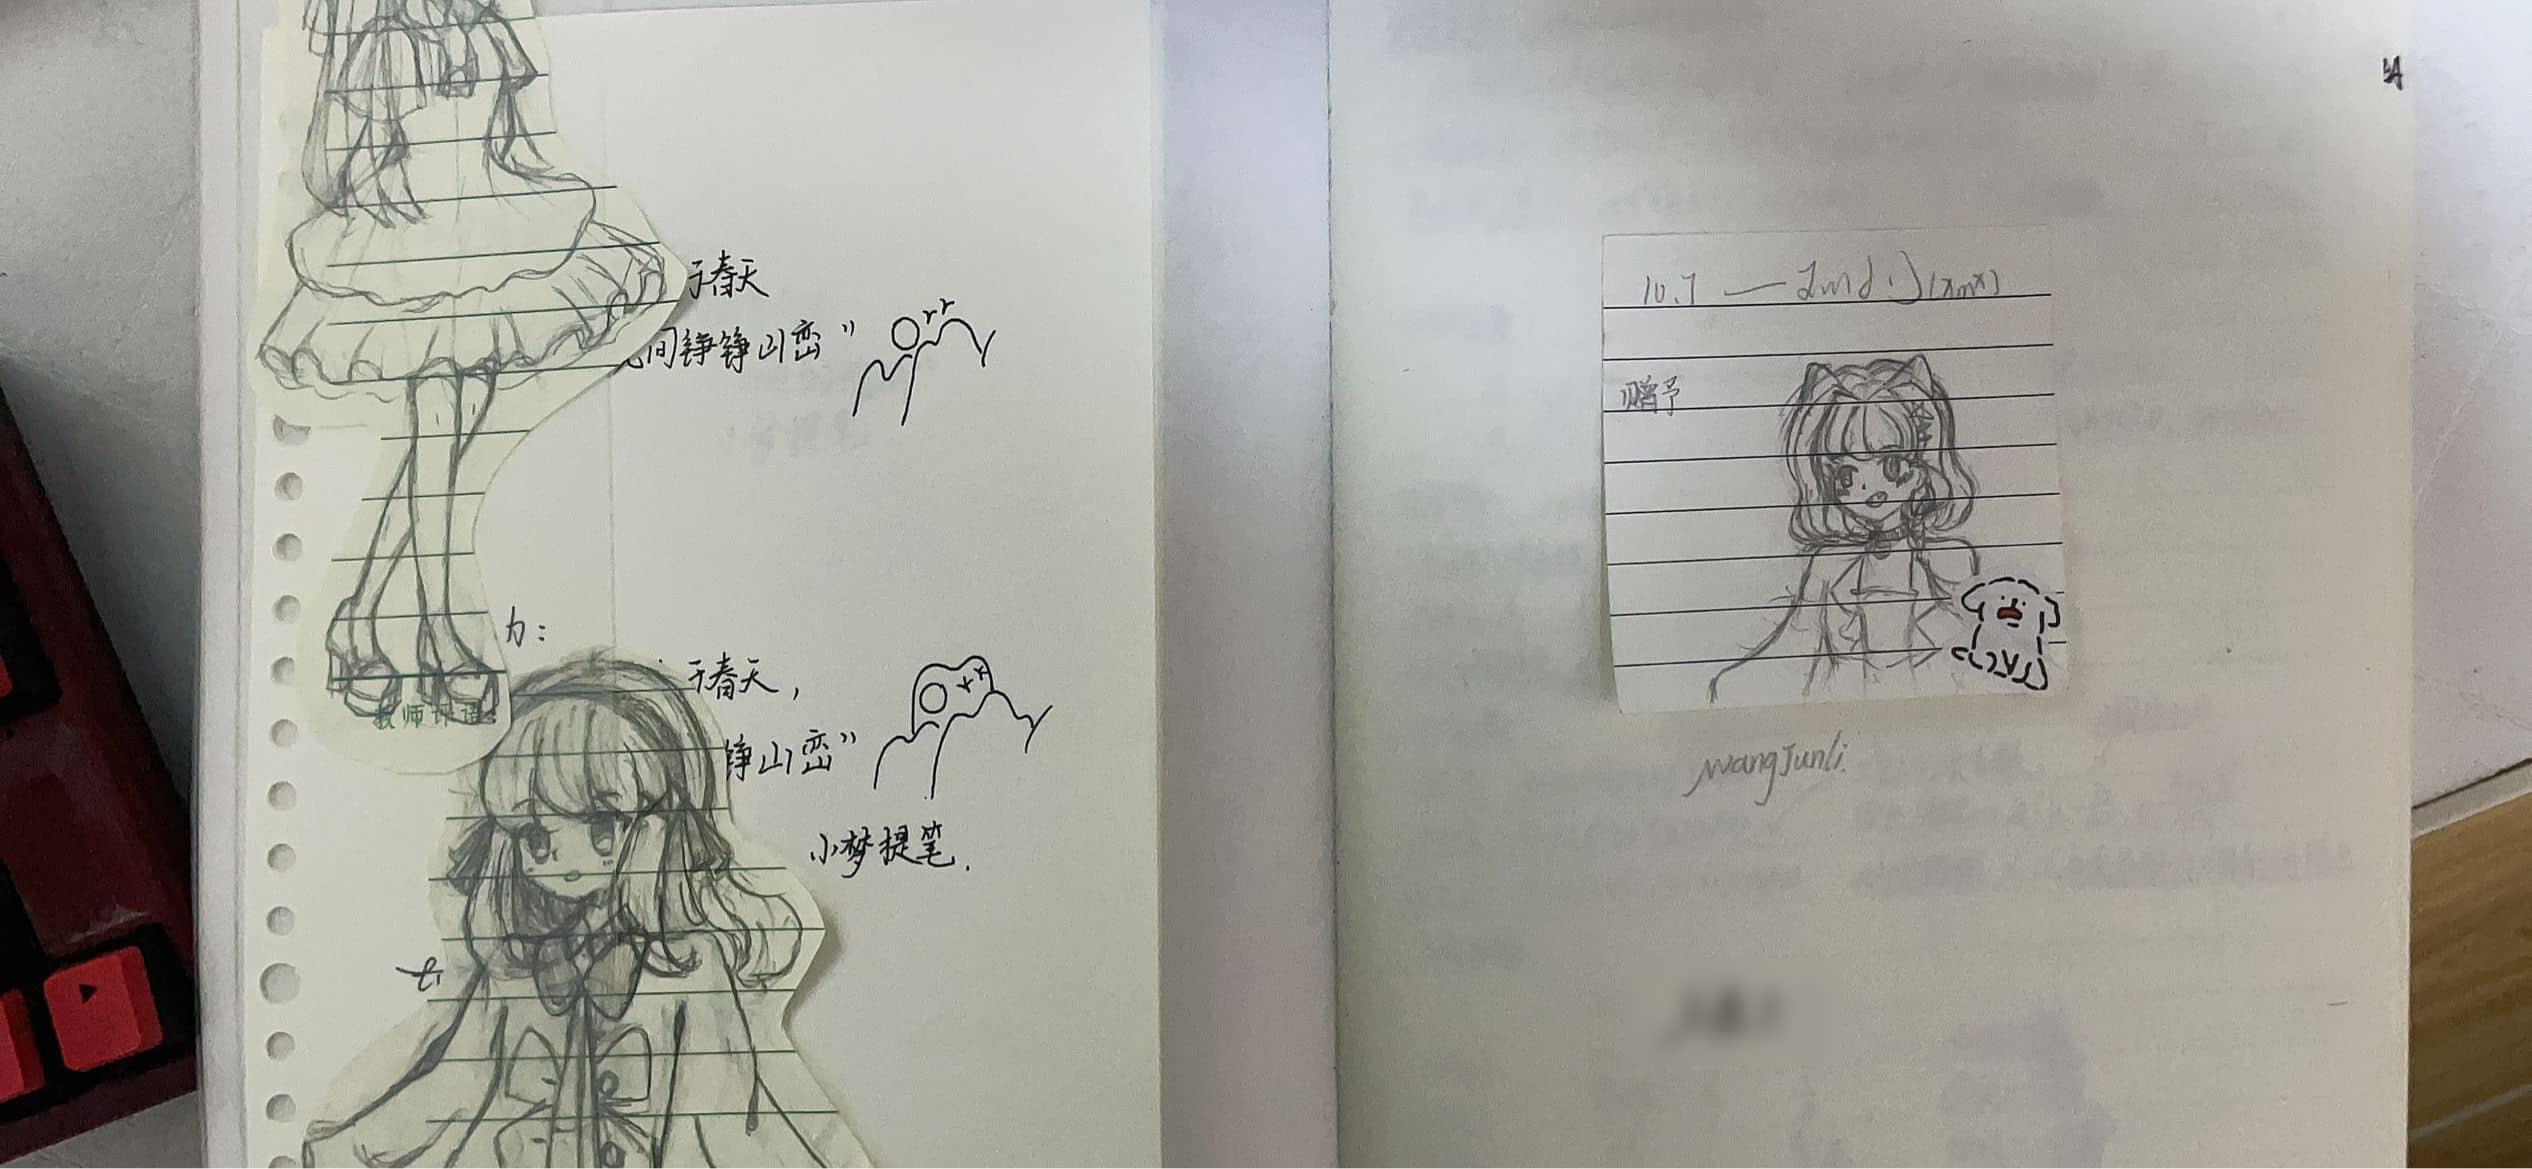 于春天
间铮铮山峦”
力：
教师评语：
于春天，
铮山峦”
小梦提笔.
10.7
赠予
wangJunli